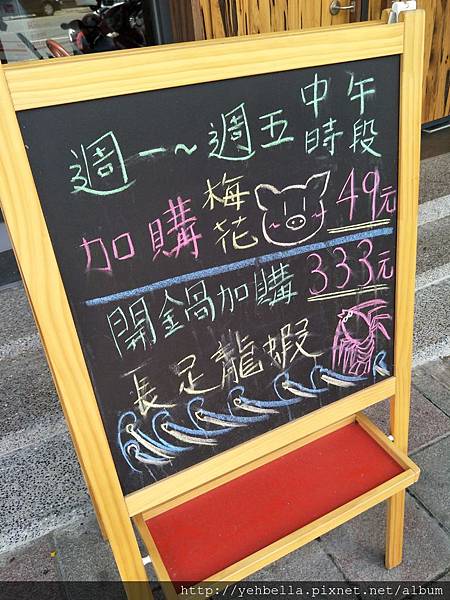 週一~週五中午時段
加購梅花49元
開鍋加購333元
長足龍蝦
http://yehbella.pixnet.net/album